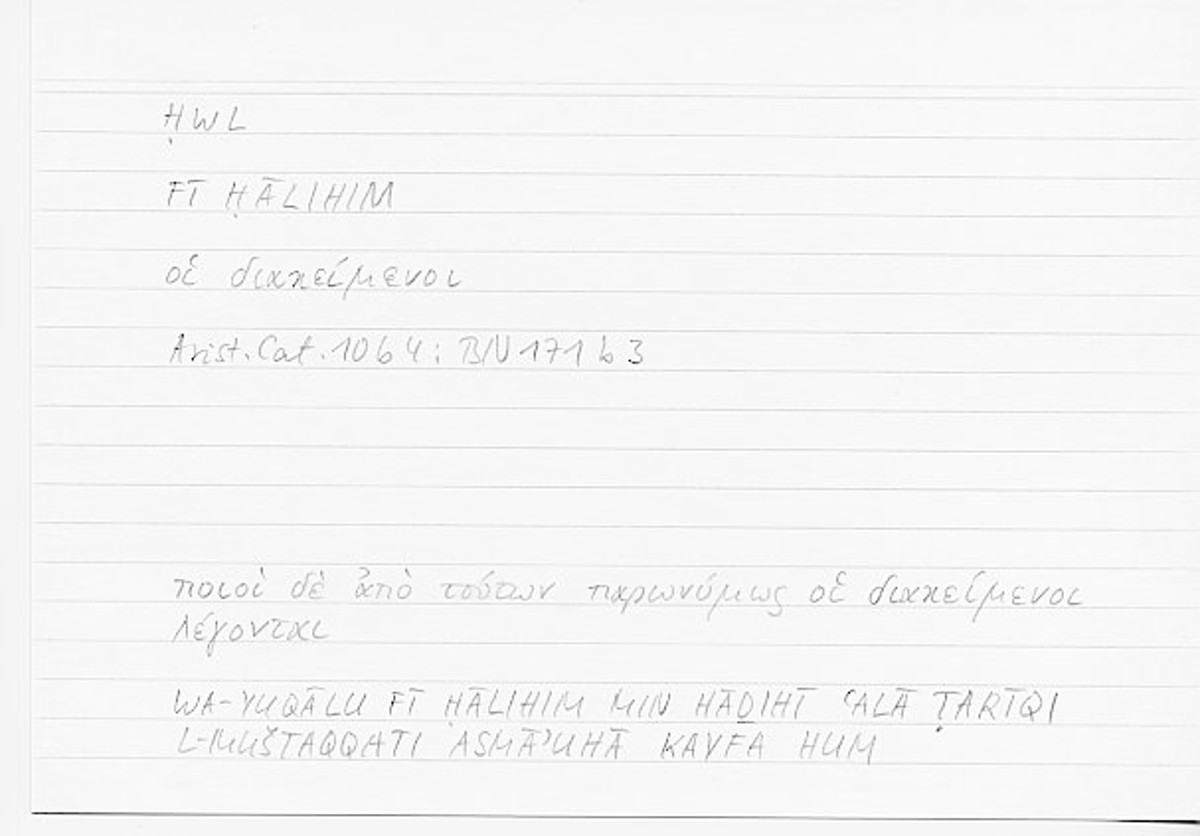 ḤWL
FĪ ḤĀLIHIM
οἱ διακείμενοι
Arist. Cat. 10b4; BN 171b3
ποιοὶ δὲ ἀπὸ τούτων παρωνύμως οἱ διακείμενοι
λέγονται
WA-YUQĀLU FĪ ḤĀLIHIM MIN HĀḎIHĪ ʿALĀ ṬARĪQI
L-MUŠTAQQATI ASMĀʾUHĀ KAYFA HUM